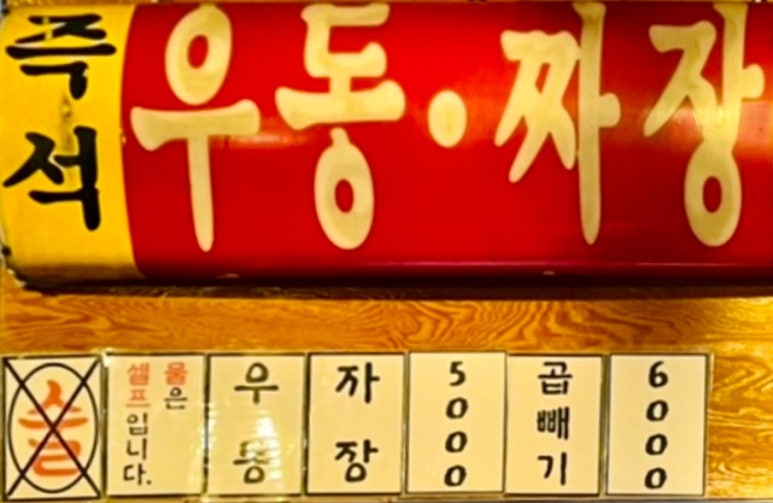 즉석
우동·짜장
술
물은
셀프입니다.
우동
자장
5000
곱빼기
6000